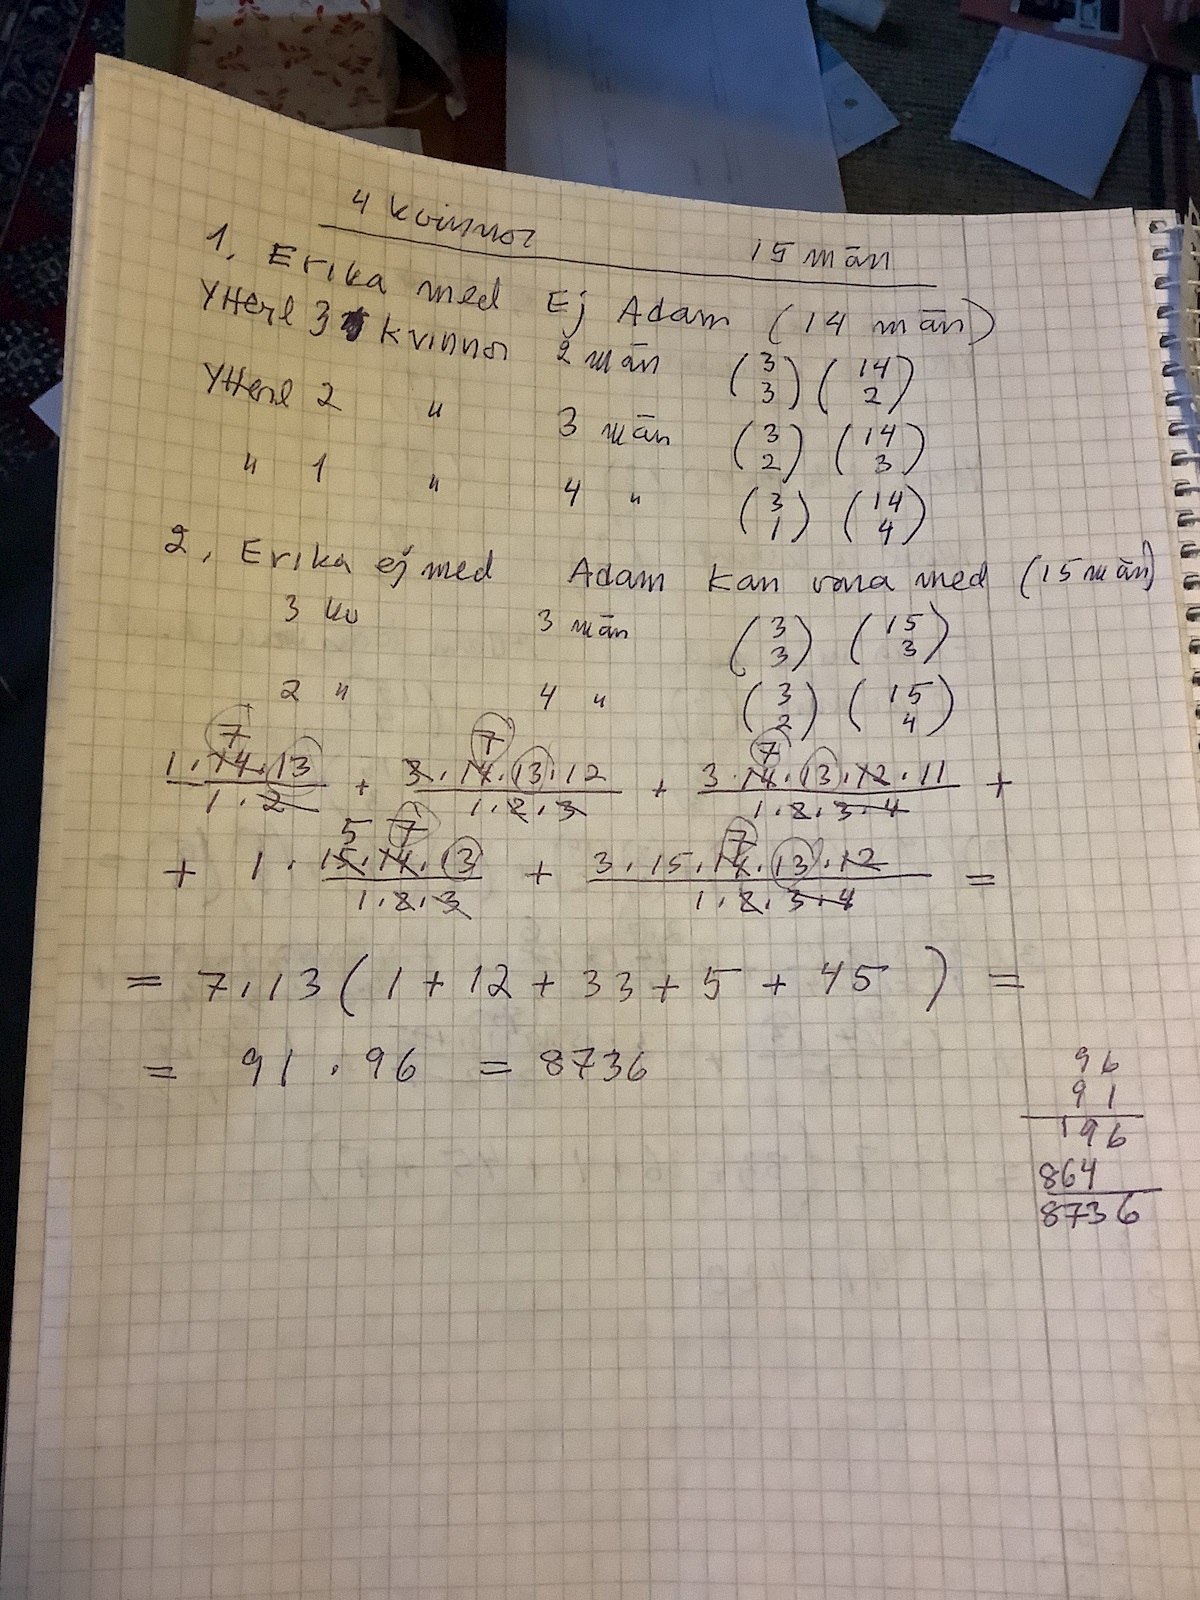 4 kvinnor 15 män
1. Erika med Ej Adam (14 män)
Ytterl 3 kvinnor 2 män (3 3) (14 2)
Ytterl 2 " 3 män (3 2) (14 3)
" 1 " 4 " (3 1) (14 4)
2. Erika ej med Adam kan vara med (15 män)
3 kv 3 män (3 3) (15 3)
2 " 4 " (3 2) (15 4)
7 7 7
1·14·13 / 1·2 + 3·14·13·12 / 1·2·3 + 3·14·13·12·11 / 1·2·3·4 +
5 7 7
+ 1·15·14·13 / 1·2·3 + 3·15·14·13·12 / 1·2·3·4 =
= 7·13(1+12+33+5+45) =
= 91·96 = 8736
96
91
196
864
8736